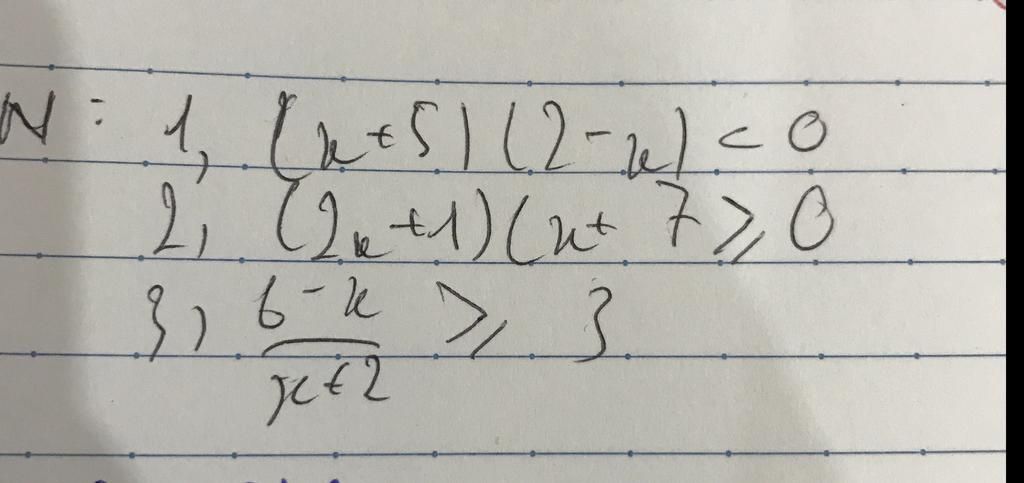 N: 1, (x+5)(2-x) < 0
2, (2x+1)(x+ 7 ≥ 0
3, 6-x / x+2 ≥ 3